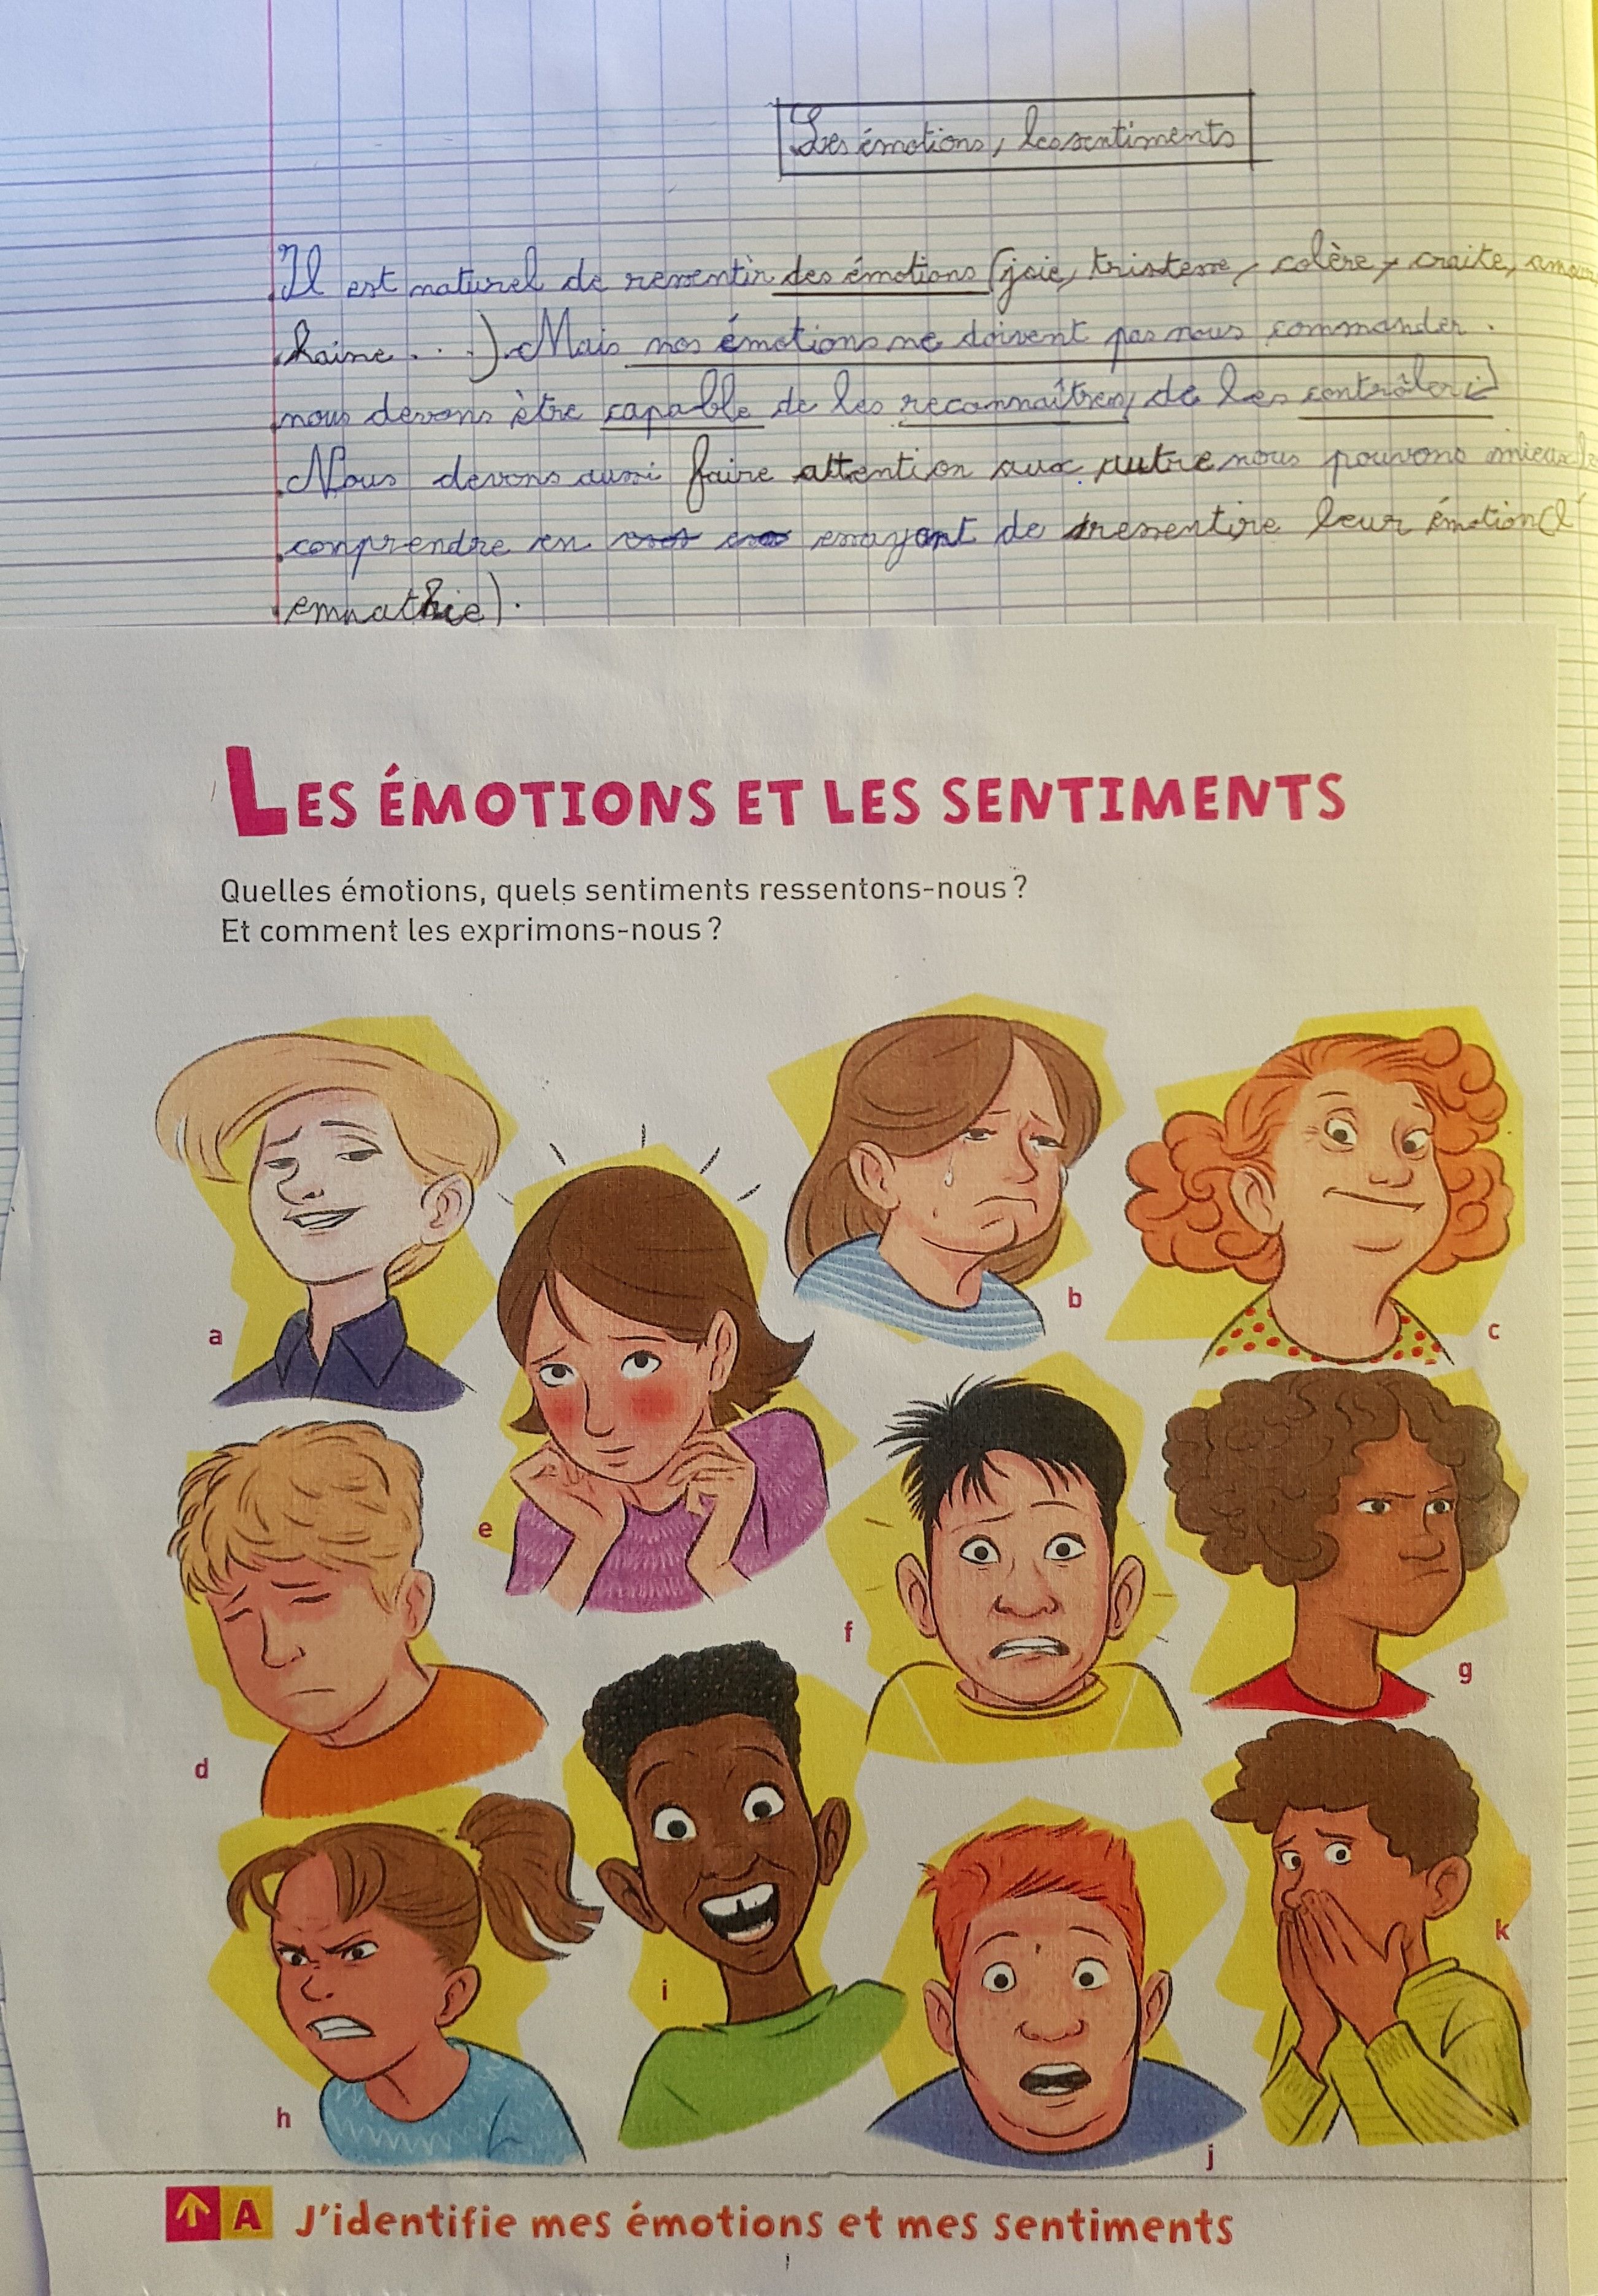 Les émotions, les sentiments
Il est naturel de ressentir des émotions (joie, tristesse, colère, craite, amour,
haine...). Mais nos émotions ne doivent pas nous commander.
nous devons être capable de les reconnaîtres, de les contrôler
Nous devons aussi faire attention aux autre nous pouvons mieux
conprendre en essayant de ressentire leur émotion (l'
empathie).
LES ÉMOTIONS ET LES SENTIMENTS
Quelles émotions, quels sentiments ressentons-nous ?
Et comment les exprimons-nous ?
a
b
c
d
e
f
g
h
i
j
k
A J'identifie mes émotions et mes sentiments